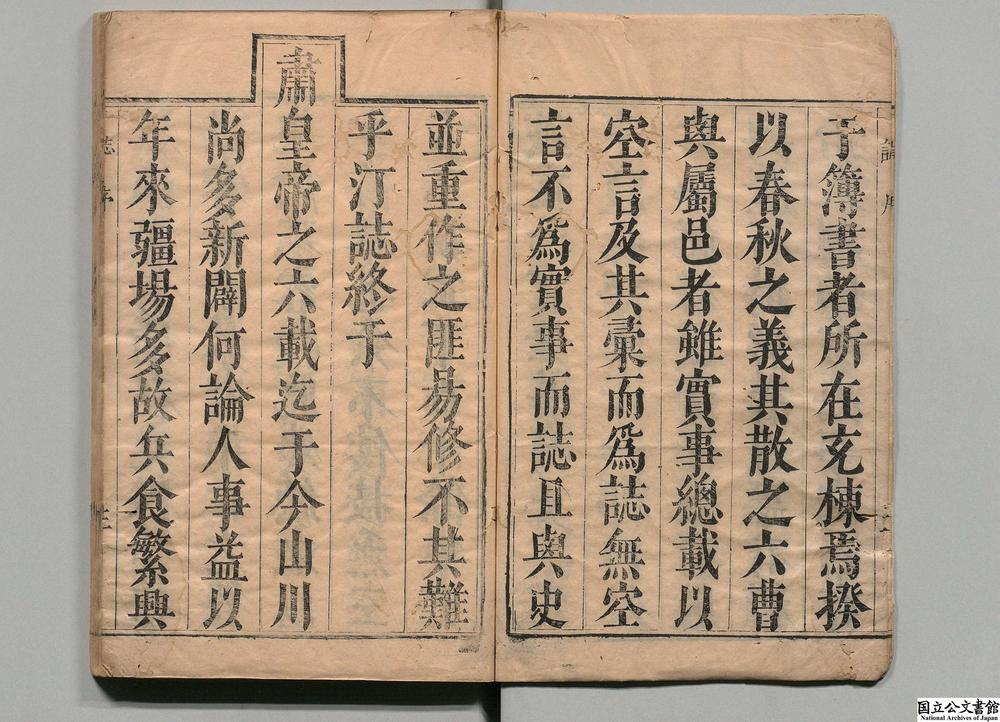 于簿書者所在充棟焉揆
以春秋之義其散之六曹
與屬邑者雖實事總載以
空言及其彙而爲誌無空
言不爲實事而誌且與史
並重作之匪易修不其難
乎汀誌終于
肅皇帝之六載迄于今山川
尚多新闢何論人事益以
年來疆場多故兵食繁興
国立公文書館
National Archives of Japan